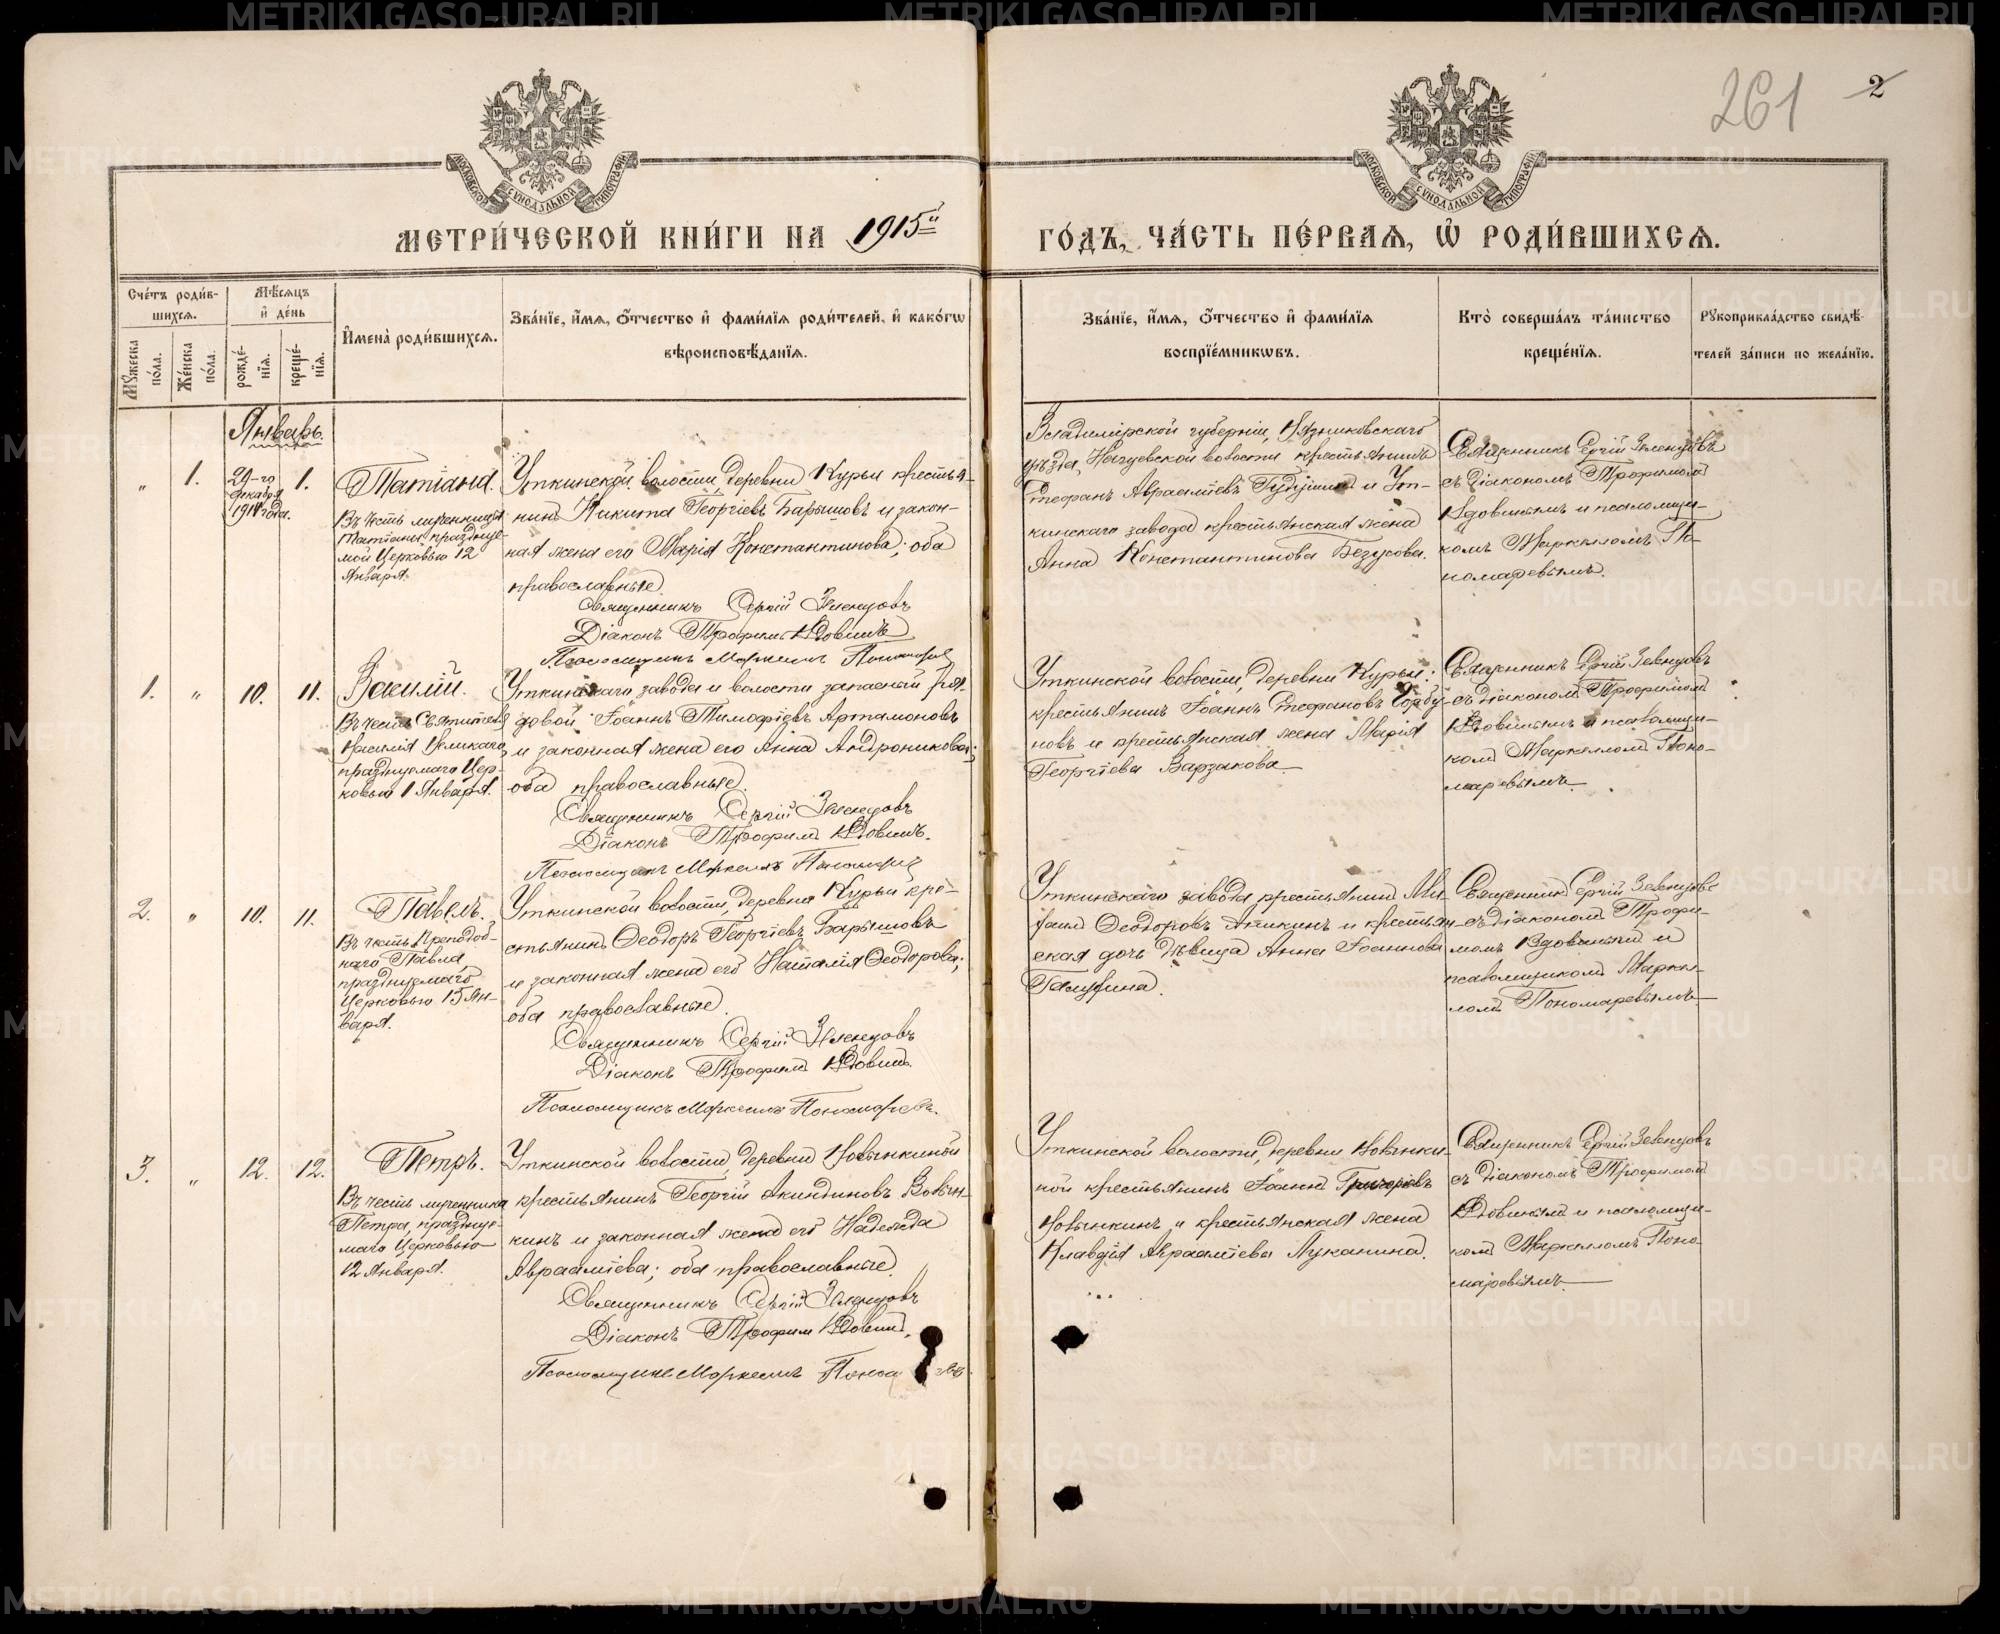 261
2
МОСКОВСКОЙ СѴНОДАЛЬНОЙ ТИПОГРАФІИ
МОСКОВСКОЙ СѴНОДАЛЬНОЙ ТИПОГРАФІИ
МЕТРИ́ЧЕСКОЙ КНИ́ГИ НА 1915й
ГО́ДЪ, ЧА́СТЬ ПЕ́РВАѦ, Ѡ҆ РОДИ́ВШИХСѦ.
Сче́тъ роди́в-
шихсѧ.
Мꙋ́жеска по́ла.
Же́нска по́ла.
Мѣ́сѧцъ
и҆ де́нь
рожде́-
нїѧ.
креще́-
нїѧ.
И҆мена̀ роди́вшихсѧ.
Зва́нїе, и҆́мѧ, ѻ҆́тчество и҆ фами́лїѧ роди́телей, и҆ како́гѡ
вѣроисповѣ́данїѧ.
Зва́нїе, и҆́мѧ, ѻ҆́тчество и҆ фами́лїѧ
воспрїе́мникѡвъ.
Кто̀ соверша́лъ та́инство
креще́нїѧ.
Рꙋкоприкла́дство свидѣ́-
телей за́писи по жела́нїю.
Январь.
„ 1. 29-го декабря 1914 года. 1.
Татіана.
Въ честь мученицы
Татіаны, празднуе-
мой Церковью 12
Января.
Уткинской волости, деревни Курьи крестья-
нинъ Никита Георгіевъ Барышовъ и закон-
ная жена его Марія Константинова; оба
православные.
Священникъ Сергій Зеленцовъ
Діаконъ Трофимъ Вдовинъ
Псаломщикъ Маркеллъ Пономаревъ
Владимірской губерніи, Вязниковскаго
уѣзда, волости крестьянинъ
Стефанъ Авраамьевъ и Ут-
кинскаго завода крестьянская жена
Анна Константинова Безусова.
Священникъ Сергій Зеленцовъ
съ діакономъ Трофимомъ
Вдовинымъ и псаломщи-
комъ Маркелломъ По-
номаревымъ.
1. „ 10. 11.
Василій.
Въ честь Святителя
Василія Великаго
празднуемаго Цер-
ковью 1 Января.
Уткинскаго завода и волости запасный ря-
довой Іоаннъ Тимофѣевъ Артамоновъ
и законная жена его Анна Андроникова;
оба православные.
Священникъ Сергій Зеленцовъ
Діаконъ Трофимъ Вдовинъ.
Псаломщикъ Маркеллъ Пономаревъ
Уткинской волости, деревни Курьи:
крестьянинъ Іоаннъ Стефановъ Горбу-
новъ и крестьянская жена Марія
Георгіева Варзакова.
Священникъ Сергій Зеленцовъ
съ діакономъ Трофимомъ
Вдовинымъ и псаломщи-
комъ Маркелломъ Поно-
маревымъ.
2. „ 10. 11.
Павелъ.
Въ честь Преподоб-
наго Павла
празднуемаго
Церковью 15 Ян-
варя.
Уткинской волости, деревни Курьи кре-
стьянинъ Ѳеодоръ Георгіевъ Барышовъ
и законная жена его Наталія Ѳеодорова;
оба православные.
Священникъ Сергій Зеленцовъ
Діаконъ Трофимъ Вдовинъ.
Псаломщикъ Маркеллъ Пономаревъ.
Уткинскаго завода крестьянинъ Ми-
хаилъ Ѳеодоровъ Аникинъ и крестьян-
ская дочь дѣвица Анна Іоаннова
Галухина.
Священникъ Сергій Зеленцовъ
съ діакономъ Трофи-
момъ Вдовинымъ и
псаломщикомъ Маркел-
ломъ Пономаревымъ.
3. „ 12. 12.
Петръ.
Въ честь мученика
Петра, празднуе-
маго Церковью
12 Января.
Уткинской волости, деревни Новинкиной
крестьянинъ Георгій Акиндиновъ Вовин-
кинъ и законная жена его Надежда
Авраамьева; оба православные.
Священникъ Сергій Зеленцовъ
Діаконъ Трофимъ Вдовинъ.
Псаломщикъ Маркеллъ
Уткинской волости, деревни Новинки-
ной крестьянинъ Іоаннъ Григорьевъ
Новинкинъ и крестьянская жена
Клавдія Авраамьева Луканина.
Священникъ Сергій Зеленцовъ
съ діакономъ Трофимомъ
Вдовинымъ и псаломщи-
комъ Маркелломъ Поно-
маревымъ.
METRIKI.GASO-URAL.RU